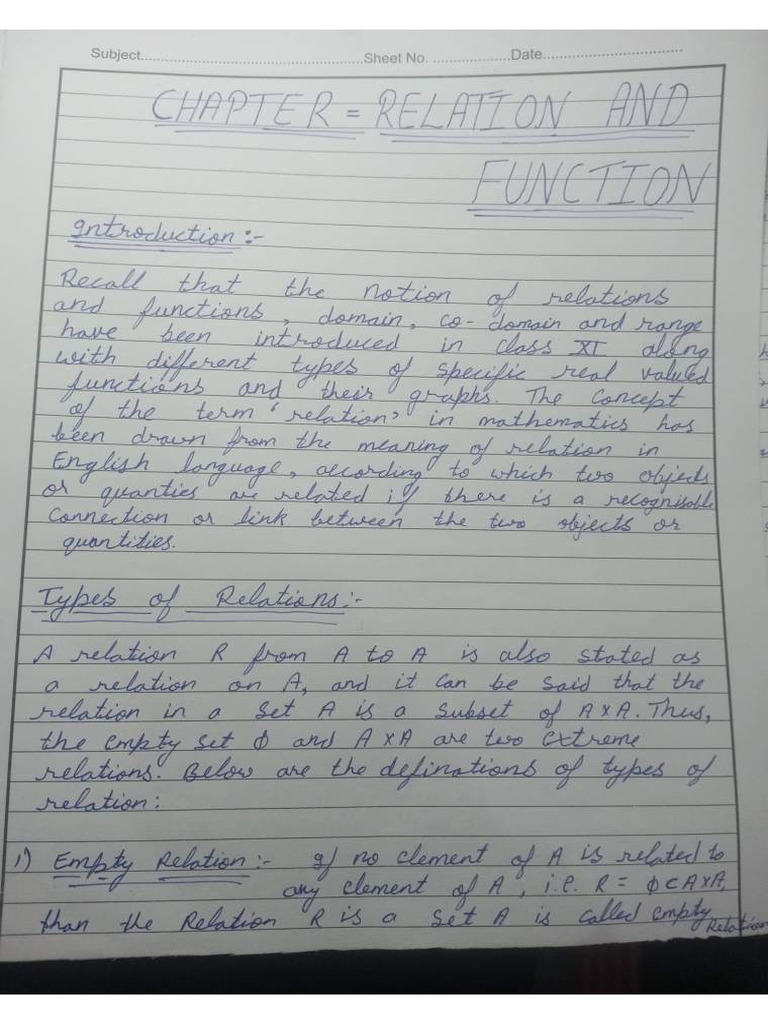 Subject.............................................Sheet No. ..................Date...............................
CHAPTER = RELATION AND
FUNCTION
Introduction :-
Recall that the notion of relations
and functions, domain, co-domain and range
have been introduced in class XI along
with different types of specific real valued
functions and their graphs. The Concept
of the term 'relation' in mathematics has
been drawn from the meaning of relation in
English language, according to which two objects
or quanties are related if there is a recognisable
connection or link between the two objects or
quantities.
Types of Relations :-
A relation R from A to A is also stated as
a relation on A, and it can be said that the
relation in a set A is a subset of A x A. Thus,
the empty set ϕ and A x A are two extreme
relations. Below are the definations of types of
relation :
1) Empty Relation :- If no element of A is related to
any element of A, i.e. R = ϕ ⊂ A x A,
than the Relation R is a set A is called empty Relation